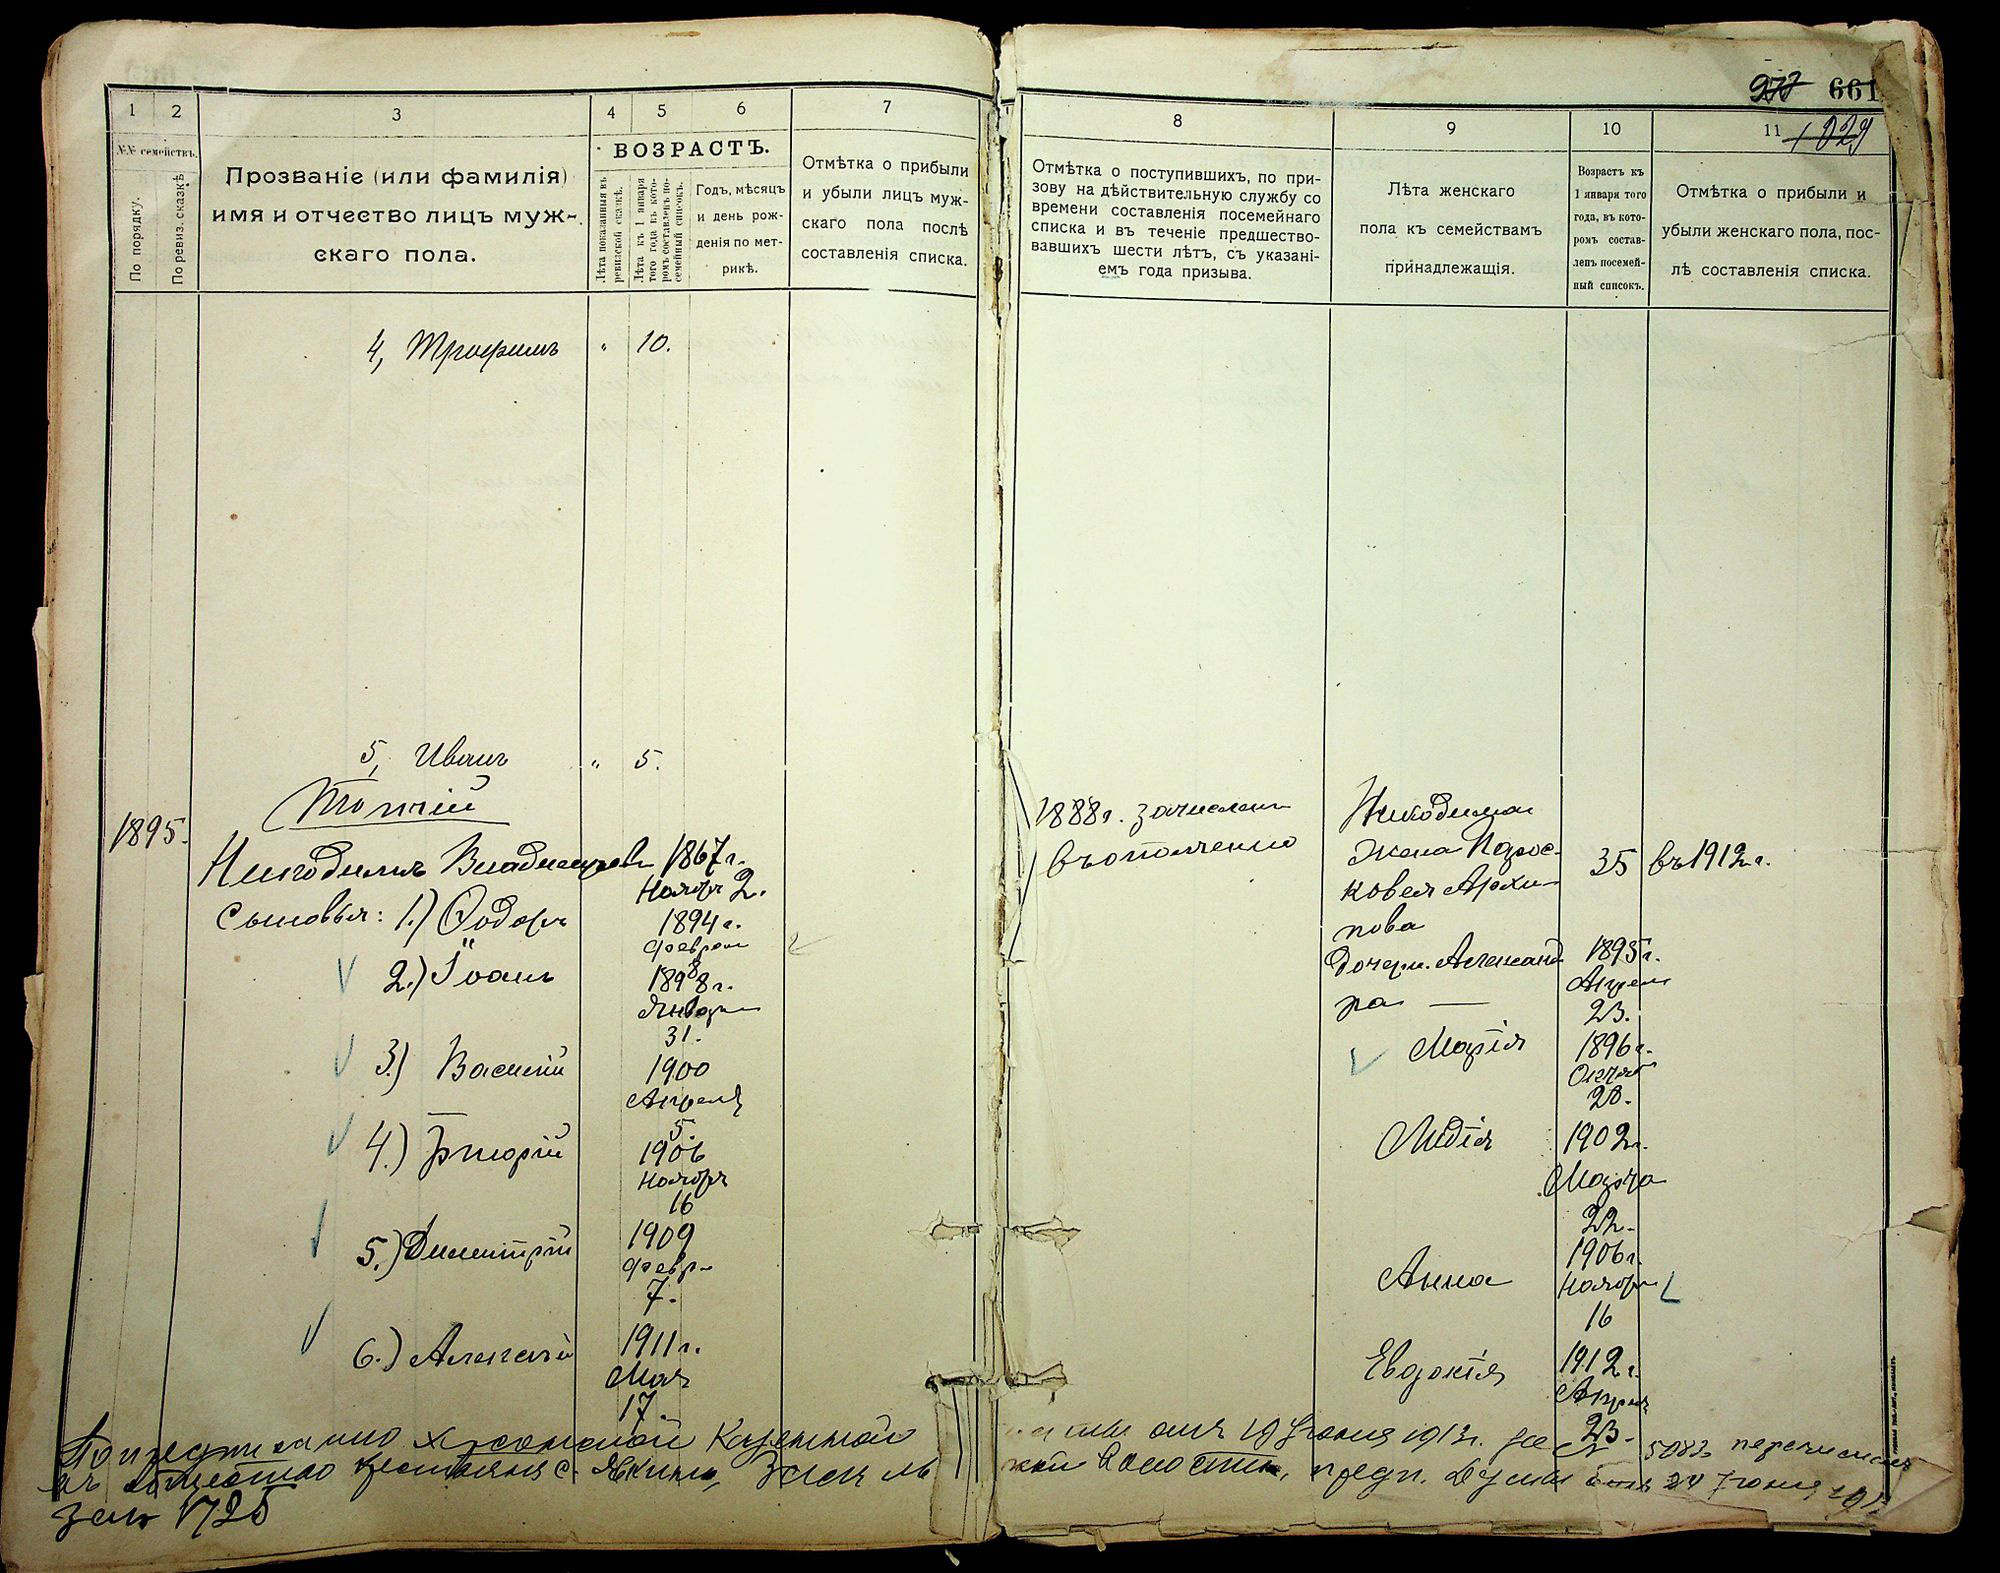 977 661
1029
1 2 3 4 5 6 7
№№ семействъ.
По порядку.
По ревиз. сказкѣ.
Прозваніе (или фамилія)
имя и отчество лицъ муж-
скаго пола.
ВОЗРАСТЪ.
Лѣта показанныя въ
ревизской сказкѣ.
Лѣта къ 1 января
того года въ кото-
ромъ составленъ по-
семейный списокъ.
Годъ, мѣсяцъ
и день рож-
денія по мет-
рикѣ.
Отмѣтка о прибыли
и убыли лицъ муж-
скаго пола послѣ
составленія списка.
4, Трофимъ " 10.
5, Иванъ " 5.
1895.
Никодимъ 1867 г.
Ноябр 2.
Сыновья: 1.) Ѳодоръ 1894 г.
Феврал
2.) Іоанъ 1898 г.
Январи
31.
3.) Василій 1900
Апреля
5.
4.) Григорій 1906
Ноября
16
5.) Димитрій 1909
Февр
7.
6.) Алексѣй 1911 г.
Мая
17.
8 9 10 11
Отмѣтка о поступившихъ, по при-
зову на дѣйствительную службу со
времени составленія посемейнаго
списка и въ теченіе предшество-
вавшихъ шести лѣтъ, съ указані-
емъ года призыва.
Лѣта женскаго
пола къ семействамъ
принадлежащія.
Возрастъ къ
1 января того
года, въ кото-
ромъ состав-
ленъ посемей-
ный списокъ.
Отмѣтка о прибыли и
убыли женскаго пола, пос-
лѣ составленія списка.
1888 г. зачислен
въ ополчение
Никодима
жена Парас-
ковея Архи-
пова
35 въ 1912 г.
дочери. Александ
ра —
1895 г.
Апрел
23.
Марія 1896 г.
Октяб
28.
Лидія 1902 г.
Марта
22.
Анна 1906 г.
Ноябр
16
Евдокія 1912 г.
Апрля
23.
По предписанию Херсонской Казенной
отъ 19 1913 г. за № 5083 перечислен
въ общество крестьянъ с. Явкино,
волости, предп.
за № 1725